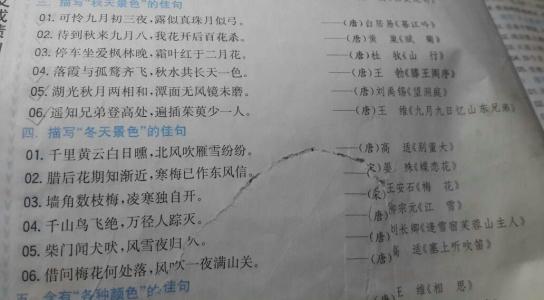 三. 描写“秋天景色”的佳句
01. 可怜九月初三夜，露似真珠月似弓。 ——(唐)白居易《暮江吟》
02. 待到秋来九月八，我花开后百花杀。 ——(唐)黄 巢《赋 菊》
03. 停车坐爱枫林晚，霜叶红于二月花。 ——(唐)杜 牧《山 行》
04. 落霞与孤鹜齐飞，秋水共长天一色。 ——(唐)王 勃《滕王阁序》
05. 湖光秋月两相和，潭面无风镜未磨。 ——(唐)刘禹锡《望洞庭》
06. 遥知兄弟登高处，遍插茱萸少一人。 ——(唐)王 维《九月九日忆山东兄弟》
四. 描写“冬天景色”的佳句
01. 千里黄云白日曛，北风吹雁雪纷纷。 ——(唐)高 适《别董大》
02. 腊后花期知渐近，寒梅已作东风信。 ——(宋)晏 殊《蝶恋花》
03. 墙角数枝梅，凌寒独自开。 ——(宋)王安石《梅 花》
04. 千山鸟飞绝，万径人踪灭。 ——(唐)柳宗元《江 雪》
05. 柴门闻犬吠，风雪夜归人。 ——(唐)刘长卿《逢雪宿芙蓉山主人》
06. 借问梅花何处落，风吹一夜满山关。 ——(唐)高 适《塞上听吹笛》
五. 含有“各种颜色”的佳句
王 维《相 思》